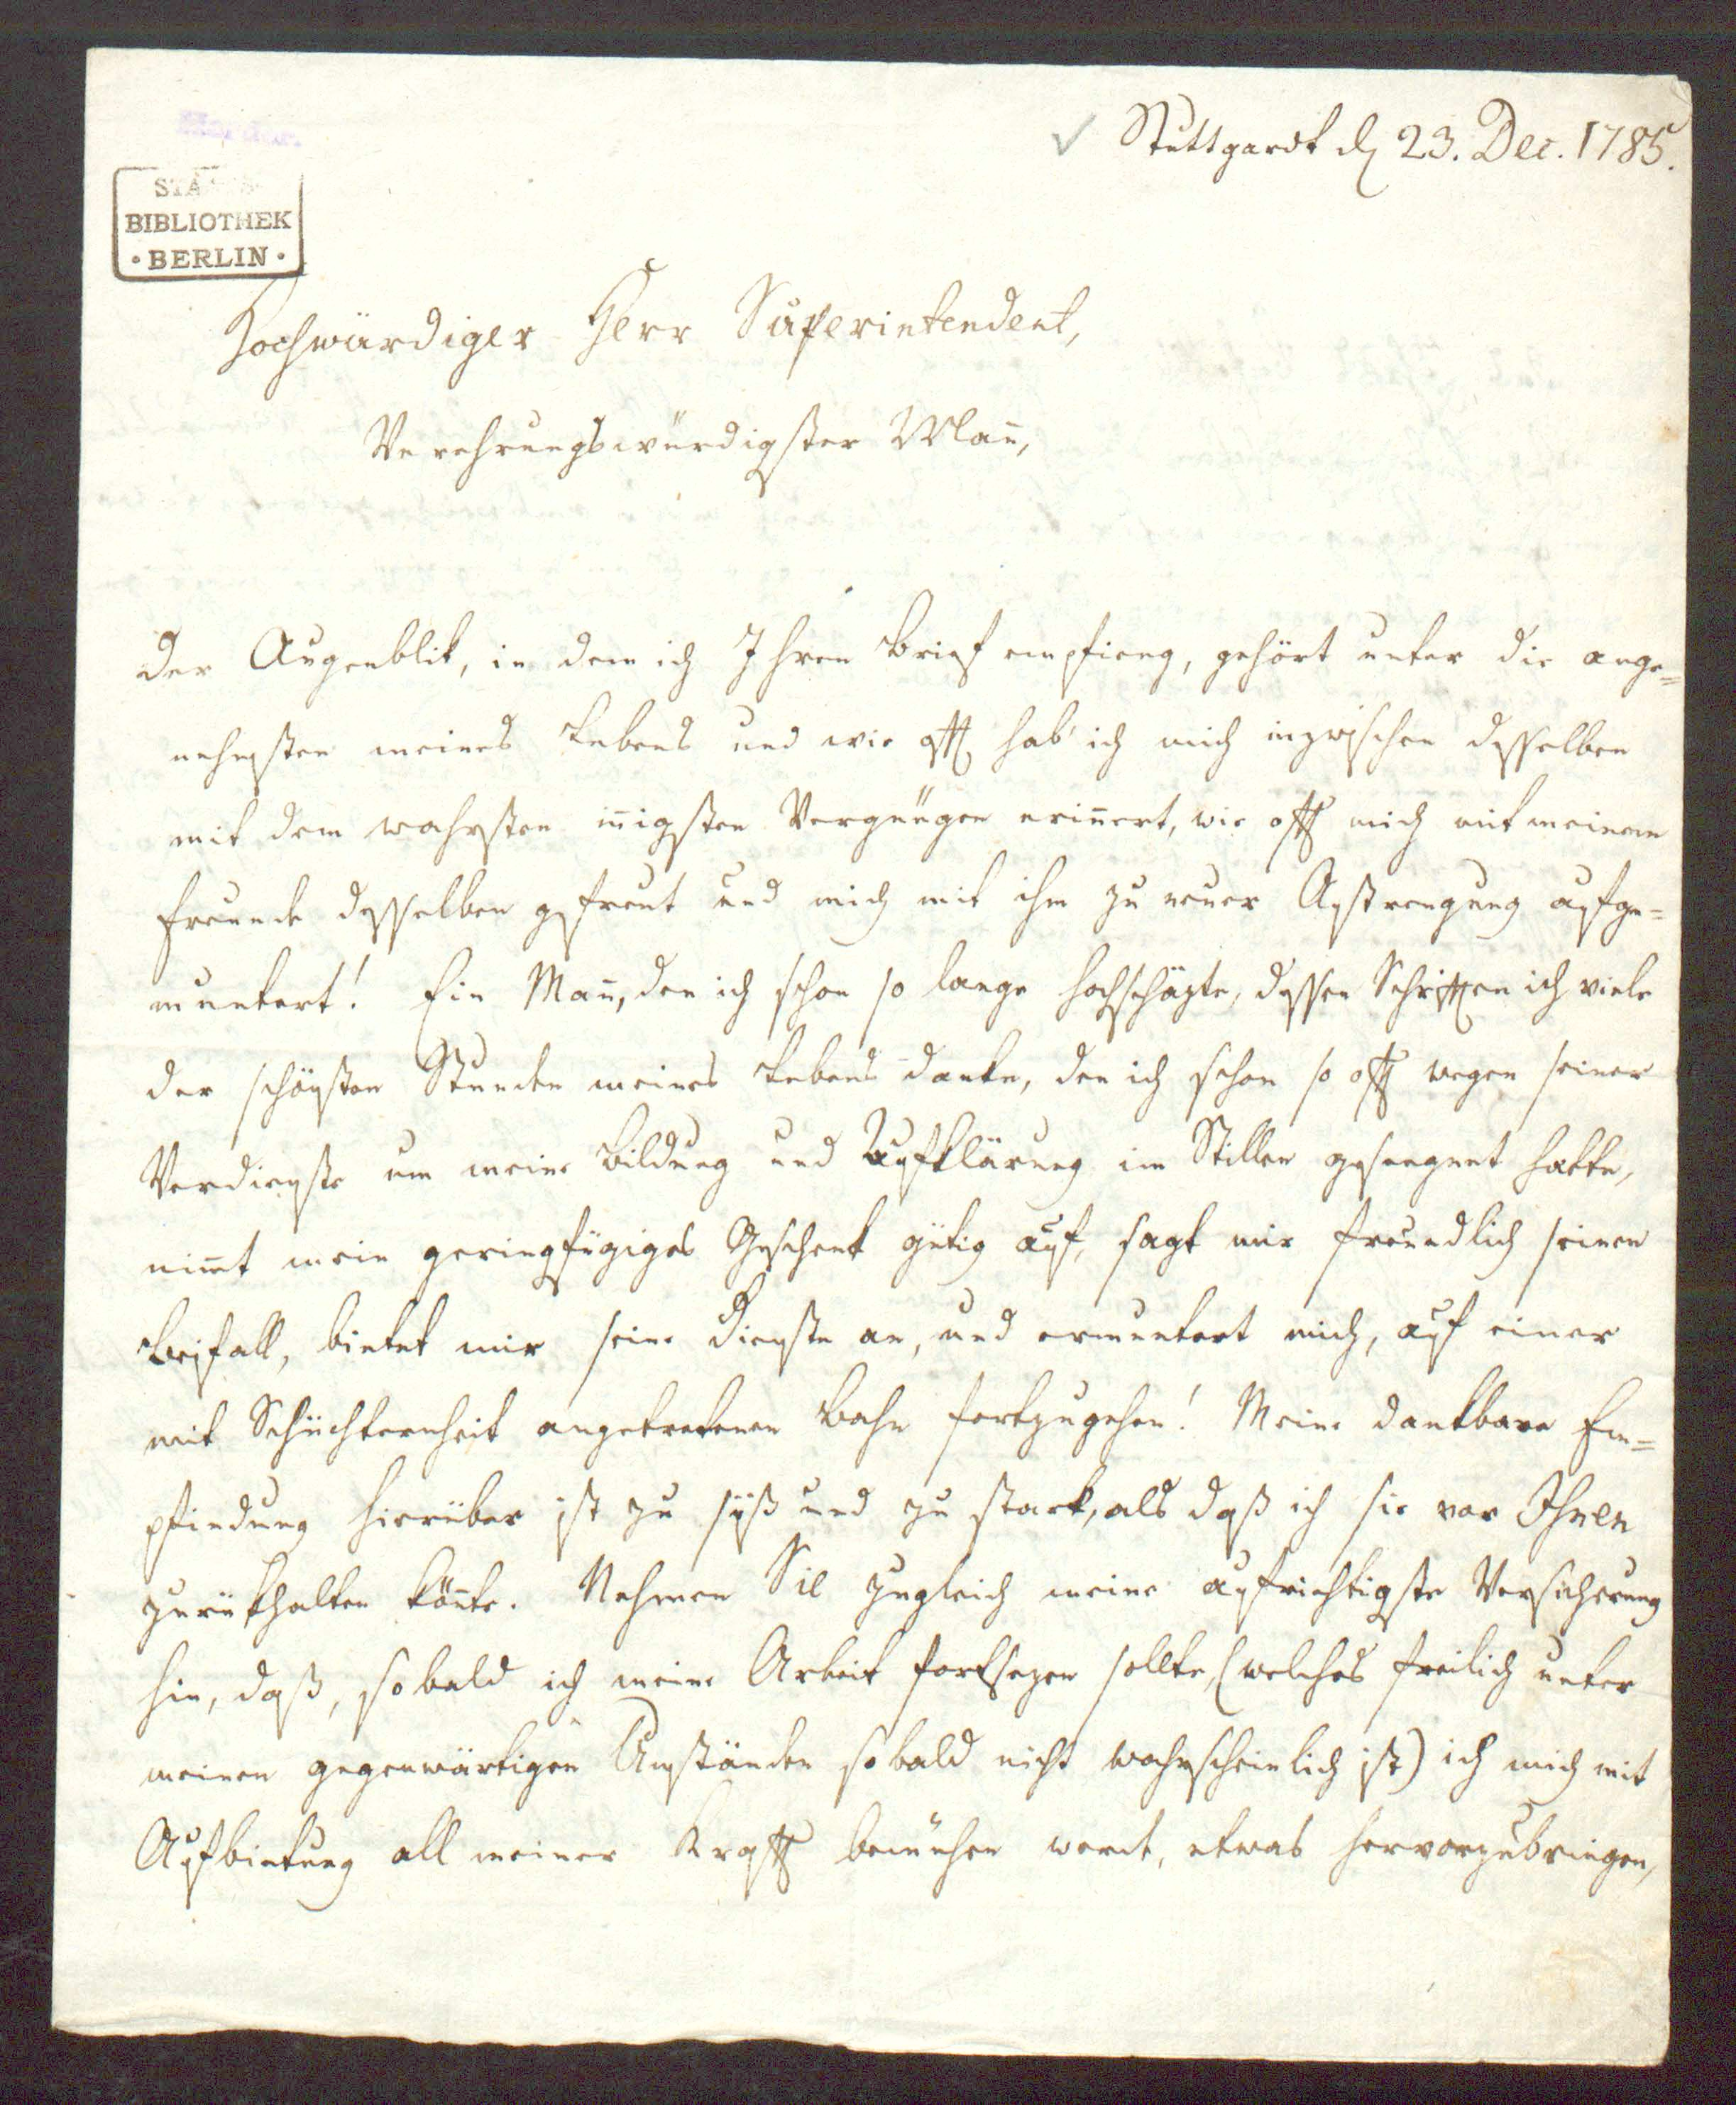 Stuttgardt d 23. Dec. 1785.
STAATS
BIBLIOTHEK
· BERLIN ·
Hochwürdiger Herr Superintendent,
Verehrungswürdigster Mañ,
Der Augenblik, in dem ich Ihren Brief empfieng, gehört unter die ange=
nehmsten meines Lebens und wie offt hab' ich mich inzwischen desselben
mit dem wahrsten iñigsten Vergnügen eriñert, wie offt mich mit meinem
Freunde desselben gefreut und mich mit ihm zu neuer Anstrengung aufge=
muntert! Ein Mañ, den ich schon so lange hochschäzte, dessen Schrifften ich viele
der schönsten Stunden meines Lebens danke, den ich schon so offt wegen seiner
Verdienste um meine Bildung und Aufklärung im Stillen gesegnet hatte,
nim̄t mein geringfügiges Geschenk gütig auf, sagt mir freundlich seinen
Beifall, bietet mir seine Dienste an, und ermuntert mich, auf einer
mit Schüchternheit angetretenen Bahn fortzugehen! Meine dankbare Em=
pfindung hierüber ist zu süß und zu stark, als daß ich sie vor Ihnen
zurükhalten köñte. Nehmen Sie zugleich meine aufrichtigste Versicherung
hin, daß, sobald ich meine Arbeit fortsezen sollte, (welches freilich unter
meinen gegenwärtigen Umständen sobald nicht wahrscheinlich ist) ich mich mit
Aufbietung all meiner Krafft bemühen werde, etwas hervorzubringen,